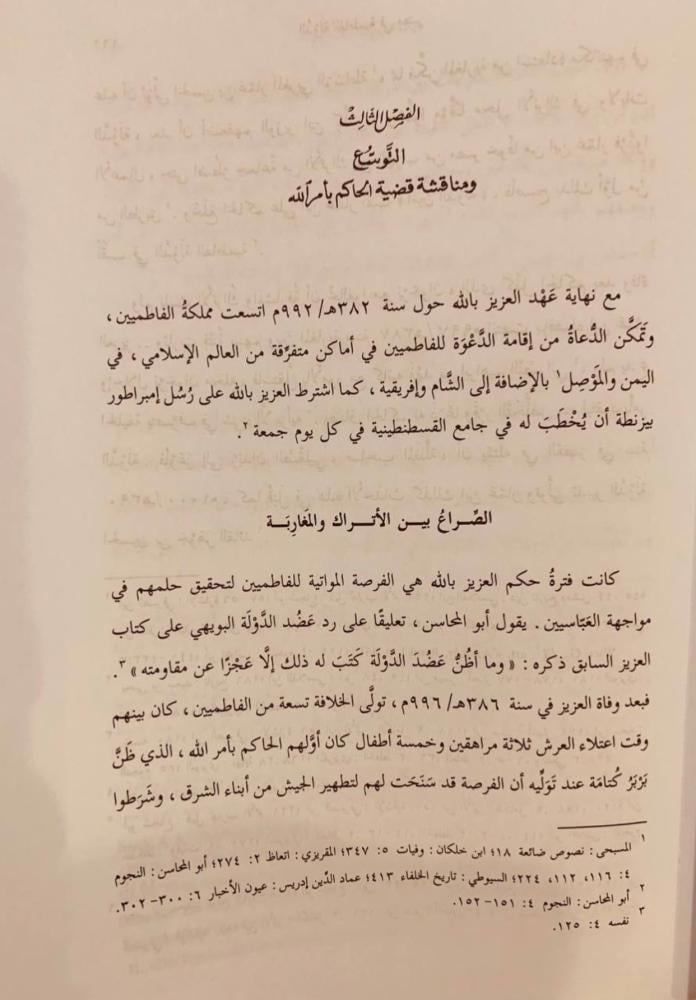 الفصل الثالث
التَّوسُّع
ومناقشة قضية الحاكم بأمر الله
مع نهاية عَهْد العزيز بالله حول سنة ٣٨٢هـ/٩٩٢م اتسعت مملكةُ الفاطميين ،
وتَمَكَّن الدُّعاةُ من إقامة الدَّعْوَة للفاطميين في أماكن متفرّقة من العالم الإسلامي ، في
اليمن والمَوْصِل١ بالإضافة إلى الشَّام وإفريقية ، كما اشترط العزيز بالله على رُسُل إمبراطور
بيزنطة أن يُخْطَبَ له في جامع القسطنطينية في كل يوم جمعة٢.
الصِّراعُ بين الأتراك والمَغارِبَة
كانت فترةُ حكم العزيز بالله هي الفرصة المواتية للفاطميين لتحقيق حلمهم في
مواجهة العَبَّاسيين . يقول أبو المحاسن ، تعليقًا على رد عَضُد الدَّوْلَة البويهي على كتاب
العزيز السابق ذكره : « وما أظُنُّ عَضُدَ الدَّوْلَة كَتَبَ له ذلك إلَّا عَجْزًا عن مقاومته »٣.
فبعد وفاة العزيز في سنة ٣٨٦هـ/٩٩٦م ، تولَّى الخلافة تسعة من الفاطميين ، كان بينهم
وقت اعتلاء العرش ثلاثة مراهقين وخمسة أطفال كان أوَّلهم الحاكم بأمر الله ، الذي ظَنَّ
بَرْبَرُ كُتامَة عند تَوَلِّيه أن الفرصة قد سَنَحَت لهم لتطهير الجيش من أبناء الشرق ، وشَرَطوا
١ المسبحى : نصوص ضائعة ١٨؛ ابن خلكان : وفيات ٥: ٣٤٧؛ المقريزي : اتعاظ ٢: ٢٧٤؛ أبو المحاسن : النجوم
٤: ١١٦، ١١٢، ٢٢٤؛ السيوطي : تاريخ الخلفاء ٤١٣؛ عماد الدِّين إدريس : عيون الأخبار ٦: ٣٠٠-٣٠٢.
٢ أبو المحاسن : النجوم ٤: ١٥١-١٥٢.
٣ نفسه ٤: ١٢٥.